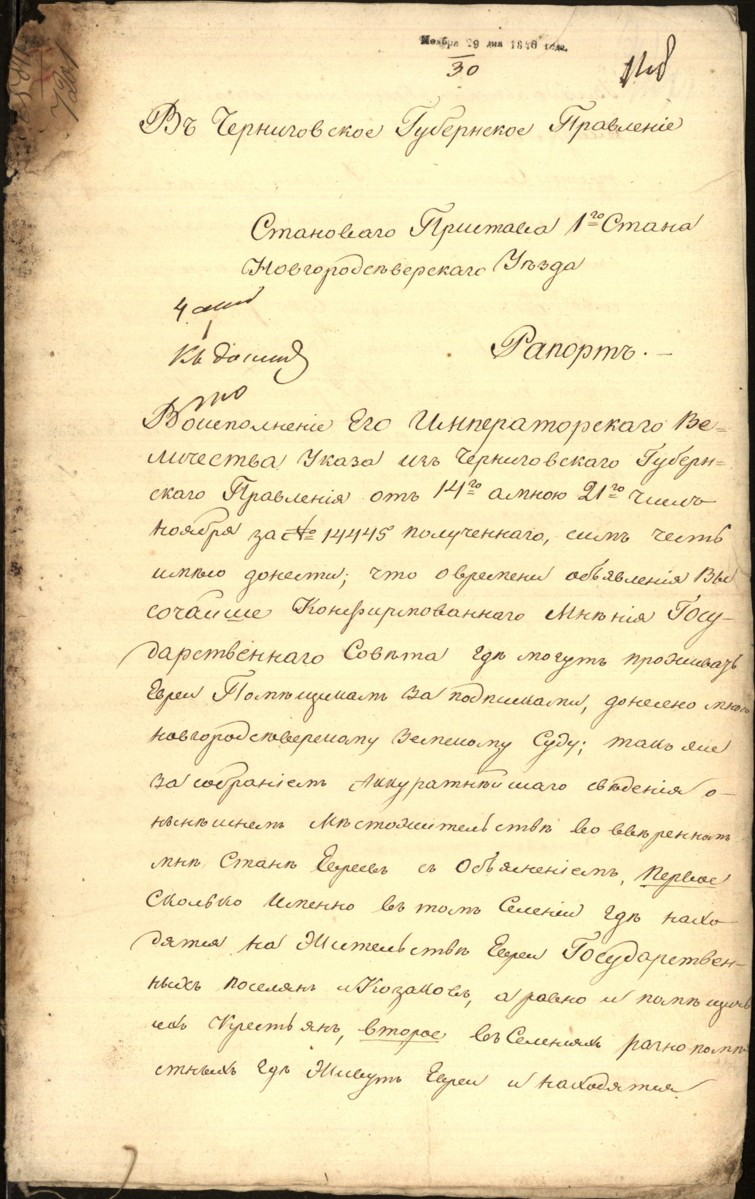 Ноября 29 дня 1840 года.
30
Въ Черниговское Губернское Правленіе
Становаго Пристава 1го Стана
Новгородсѣверскаго Уѣзда
Рапортъ. —
Воисполненіе Его Императорскаго Ве=
личества Указа изъ Черниговскаго Губерн=
скаго Правленія отъ 14го а мною 21го числъ
ноября за № 14445 полученнаго, симъ честь
имѣю донести; что о времени объявленія Вы
сочайше Конфирмованнаго Мнѣнія Госу-
дарственнаго Совѣта гдѣ могутъ проживать
Евреи Помѣщикамъ за подписками, донесено мною
новгородсѣверскому Земскому Суду; такъ же
За собраніемъ Аккуратнѣйшаго свѣденія о-
нынѣшнемъ Мѣстожительствѣ во ввѣренномъ
мнѣ Станѣ Евреевъ с Объясненіемъ, первое
Сколько Именно въ томъ Селеніи гдѣ нахо
дятся на Жительствѣ Евреи Государствен-
ныхъ поселянъ и Козаковъ, а равно и помѣщичь
ихъ Крестьянъ, второе въ Селеніяхъ разнопомѣ-
стныхъ гдѣ Живутъ Евреи и находятся